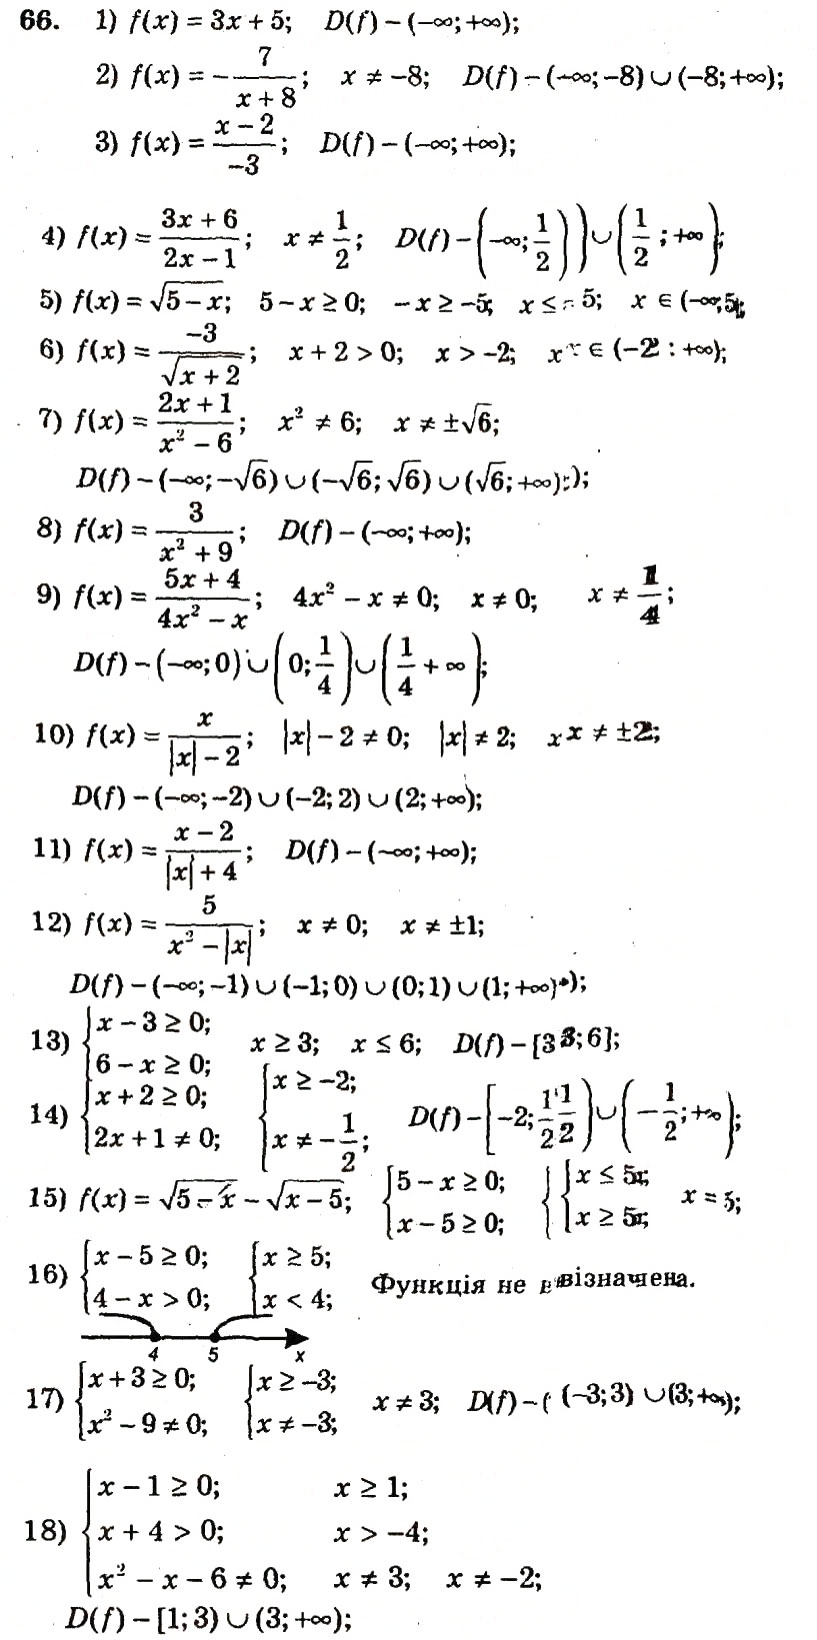 66. 1) f(x) = 3x + 5; D(f) – (–∞; +∞);
2) f(x) = –7/(x + 8); x ≠ –8; D(f) – (–∞; –8) ∪ (–8; +∞);
3) f(x) = (x – 2)/–3; D(f) – (–∞; +∞);
4) f(x) = (3x + 6)/(2x – 1); x ≠ 1/2; D(f) – (–∞; 1/2)) ∪ (1/2; +∞);
5) f(x) = √(5 – x); 5 – x ≥ 0; –x ≥ –5; x ≤ 5; x ∈ (–∞; 5];
6) f(x) = –3/√(x + 2); x + 2 > 0; x > –2; x ∈ (–2 : +∞);
7) f(x) = (2x + 1)/(x² – 6); x² ≠ 6; x ≠ ±√6;
D(f) – (–∞; –√6) ∪ (–√6; √6) ∪ (√6; +∞);
8) f(x) = 3/(x² + 9); D(f) – (–∞; +∞);
9) f(x) = (5x + 4)/(4x² – x); 4x² – x ≠ 0; x ≠ 0; x ≠ 1/4;
D(f) – (–∞; 0) ∪ (0; 1/4) ∪ (1/4 + ∞);
10) f(x) = x/(|x| – 2); |x| – 2 ≠ 0; |x| ≠ 2; x ≠ ±2;
D(f) – (–∞; –2) ∪ (–2; 2) ∪ (2; +∞);
11) f(x) = (x – 2)/(|x| + 4); D(f) – (–∞; +∞);
12) f(x) = 5/(x² – |x|); x ≠ 0; x ≠ ±1;
D(f) – (–∞; –1) ∪ (–1; 0) ∪ (0; 1) ∪ (1; +∞);
13) {x – 3 ≥ 0; 6 – x ≥ 0; x ≥ 3; x ≤ 6; D(f) – [3; 6];
14) {x + 2 ≥ 0; 2x + 1 ≠ 0; {x ≥ –2; x ≠ –1/2; D(f) – [–2; 1/2) ∪ (–1/2; +∞);
15) f(x) = √(5 – x) – √(x – 5); {5 – x ≥ 0; x – 5 ≥ 0; {x ≤ 5; x ≥ 5; x = 5;
16) {x – 5 ≥ 0; 4 – x > 0; {x ≥ 5; x < 4; Функція не визначена.
4 5 x
17) {x + 3 ≥ 0; x² – 9 ≠ 0; {x ≥ –3; x ≠ –3; x ≠ 3; D(f) – (–3; 3) ∪ (3; +∞);
18) {x – 1 ≥ 0; x ≥ 1;
x + 4 > 0; x > –4;
x² – x – 6 ≠ 0; x ≠ 3; x ≠ –2;
D(f) – [1; 3) ∪ (3; +∞);